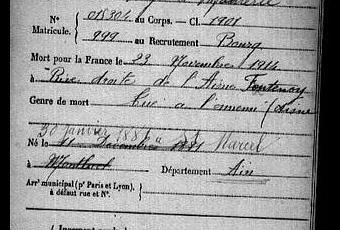 Infanterie
N° 018304 au Corps. — Cl. 1901
Matricule. 999 au Recrutement Bourg
Mort pour la France le 23 Novembre 1914
à Rive droite de l'Aisne Fontenoy
Genre de mort Tué à l'ennemi (Aisne
30 janvier 1881 à St Marcel
Né le Décembre 1881
à Montluel Département Ain
Arrt municipal (pr Paris et Lyon),
à défaut rue et N°.